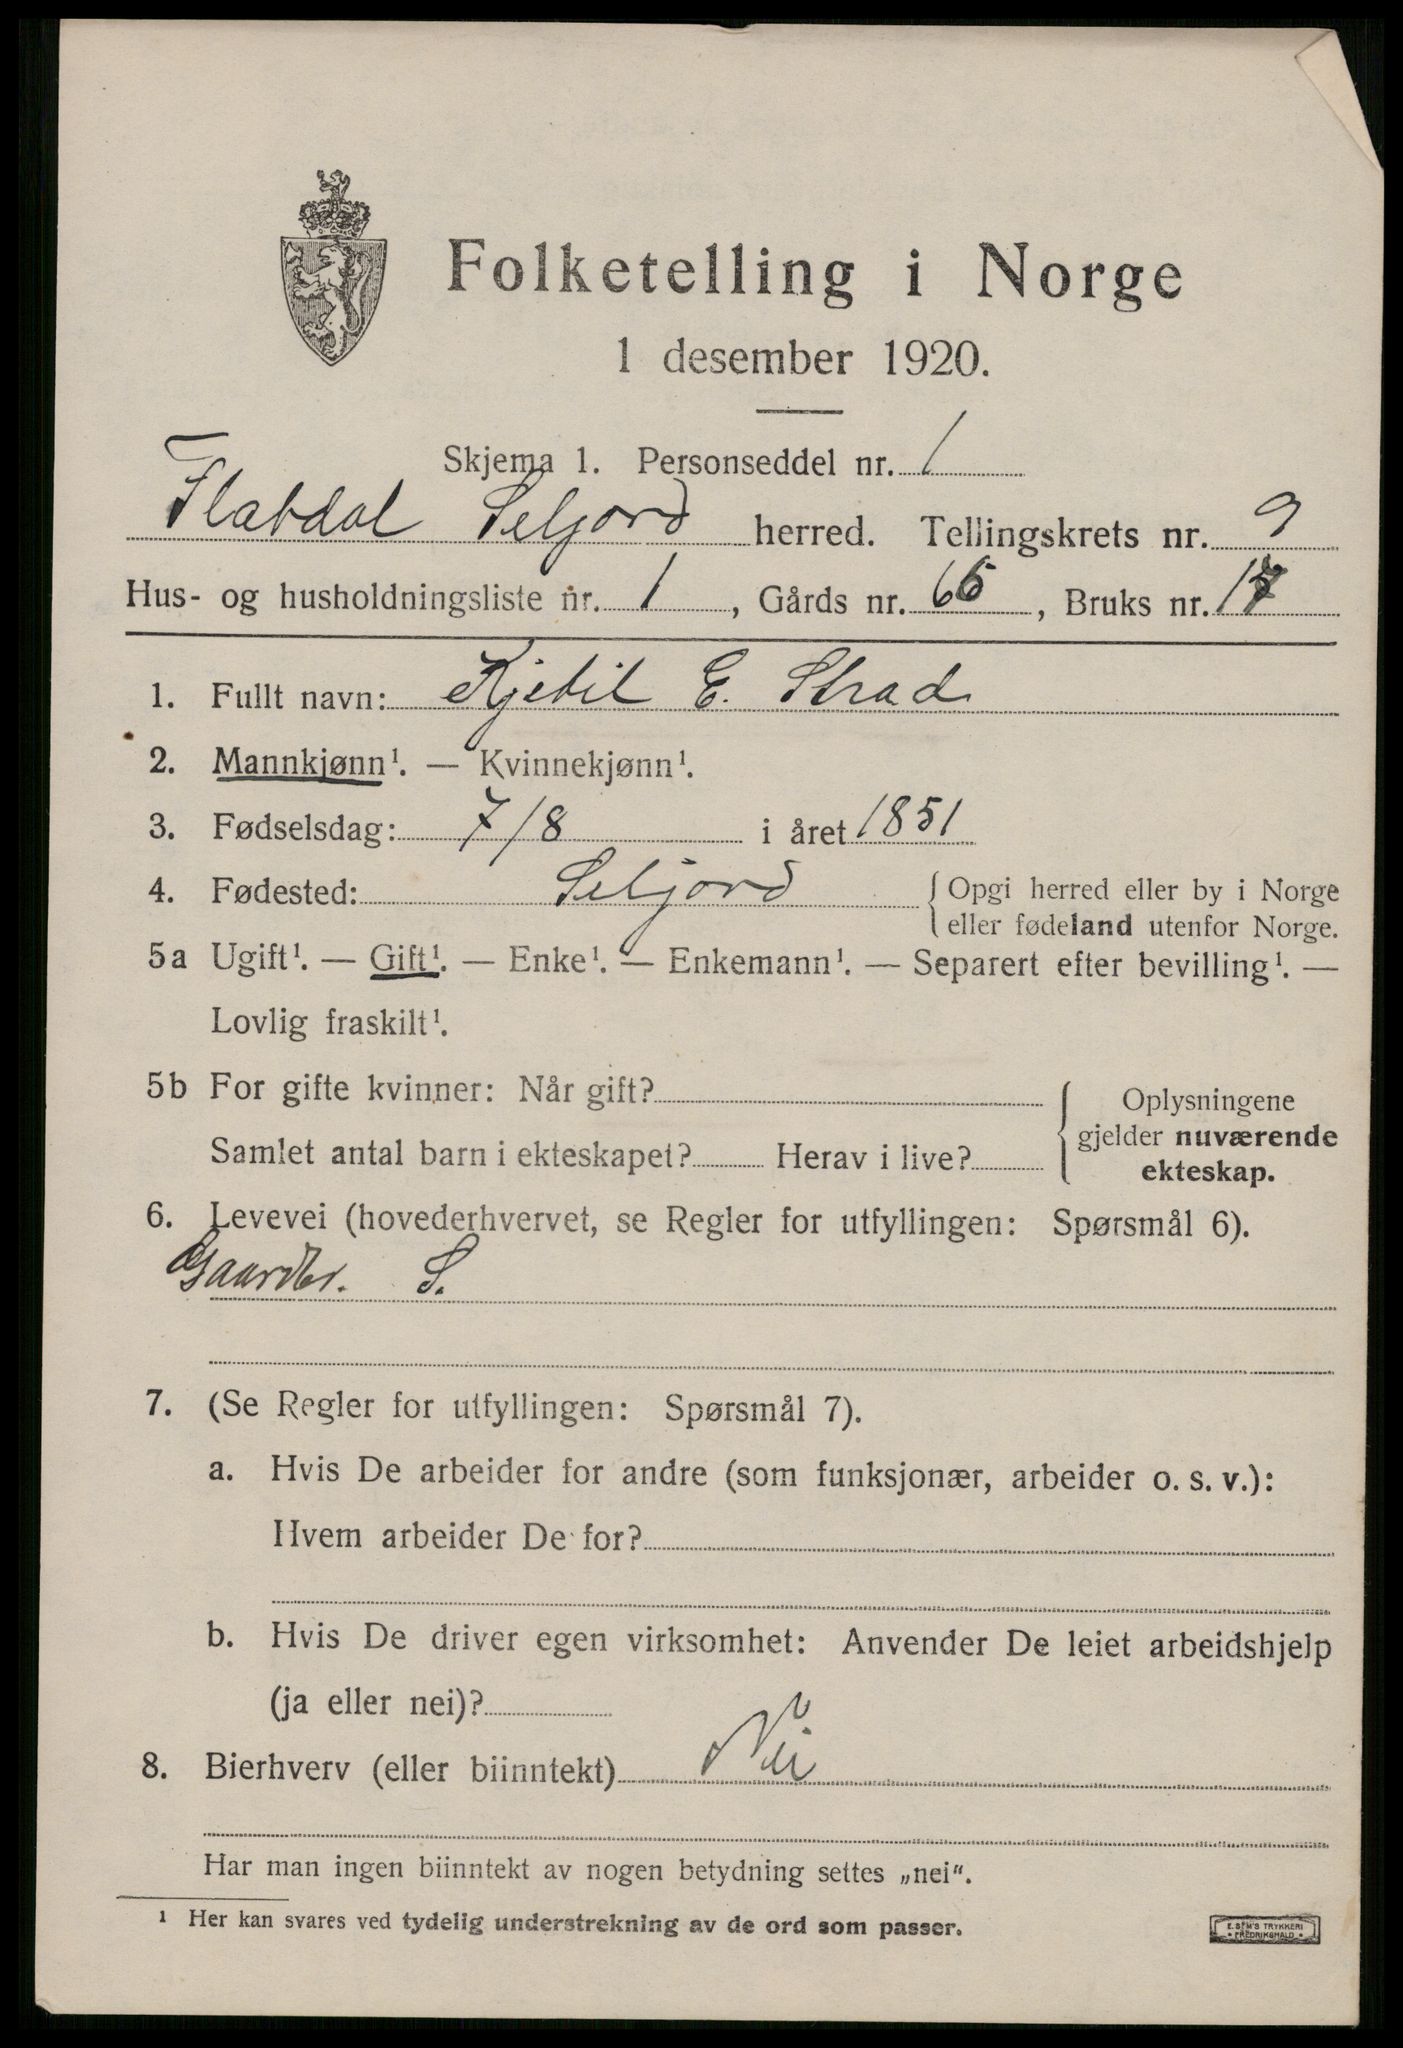 Folketelling i Norge
1 desember 1920.
Skjema 1. Personseddel nr. 1
Flatdal Seljord herred. Tellingskrets nr. 9
Hus- og husholdningsliste nr. 1, Gårds nr. 65, Bruks nr. 17
1. Fullt navn: Kjetil E. Strad
2. Mannkjønn¹. — Kvinnekjønn¹.
3. Fødselsdag: 7/8 i året 1851
4. Fødested: Seljord { Opgi herred eller by i Norge
eller fødeland utenfor Norge.
5a Ugift¹. — Gift¹. — Enke¹. — Enkemann¹. — Separert efter bevilling¹. —
Lovlig fraskilt¹.
5b For gifte kvinner: Når gift?
Samlet antal barn i ekteskapet? Herav i live?
Oplysningene
gjelder nuværende
ekteskap.
6. Levevei (hovederhvervet, se Regler for utfyllingen: Spørsmål 6).
Gaardbr. S.
7. (Se Regler for utfyllingen: Spørsmål 7).
a. Hvis De arbeider for andre (som funksjonær, arbeider o. s. v.):
Hvem arbeider De for?
b. Hvis De driver egen virksomhet: Anvender De leiet arbeidshjelp
(ja eller nei)?
8. Bierhverv (eller biinntekt) Nei
Har man ingen biinntekt av nogen betydning settes „nei“.
¹ Her kan svares ved tydelig understrekning av de ord som passer.
E. SEM'S TRYKKERI
• FREDRIKSHALD •